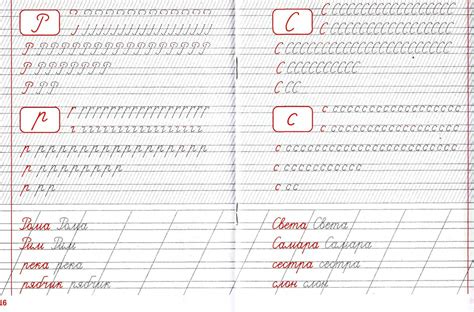 Р
Р РР
р
р рр
Рома Рома
Рим Рим
река река
рябчик рябчик
16
С
С СС
с
с сс
Света Света
Самара Самара
сестра сестра
слон слон